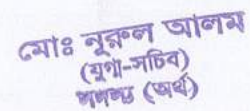 মোঃ নুরুল আলম
(যুগ্ম-সচিব)
সদস্য (অর্থ)